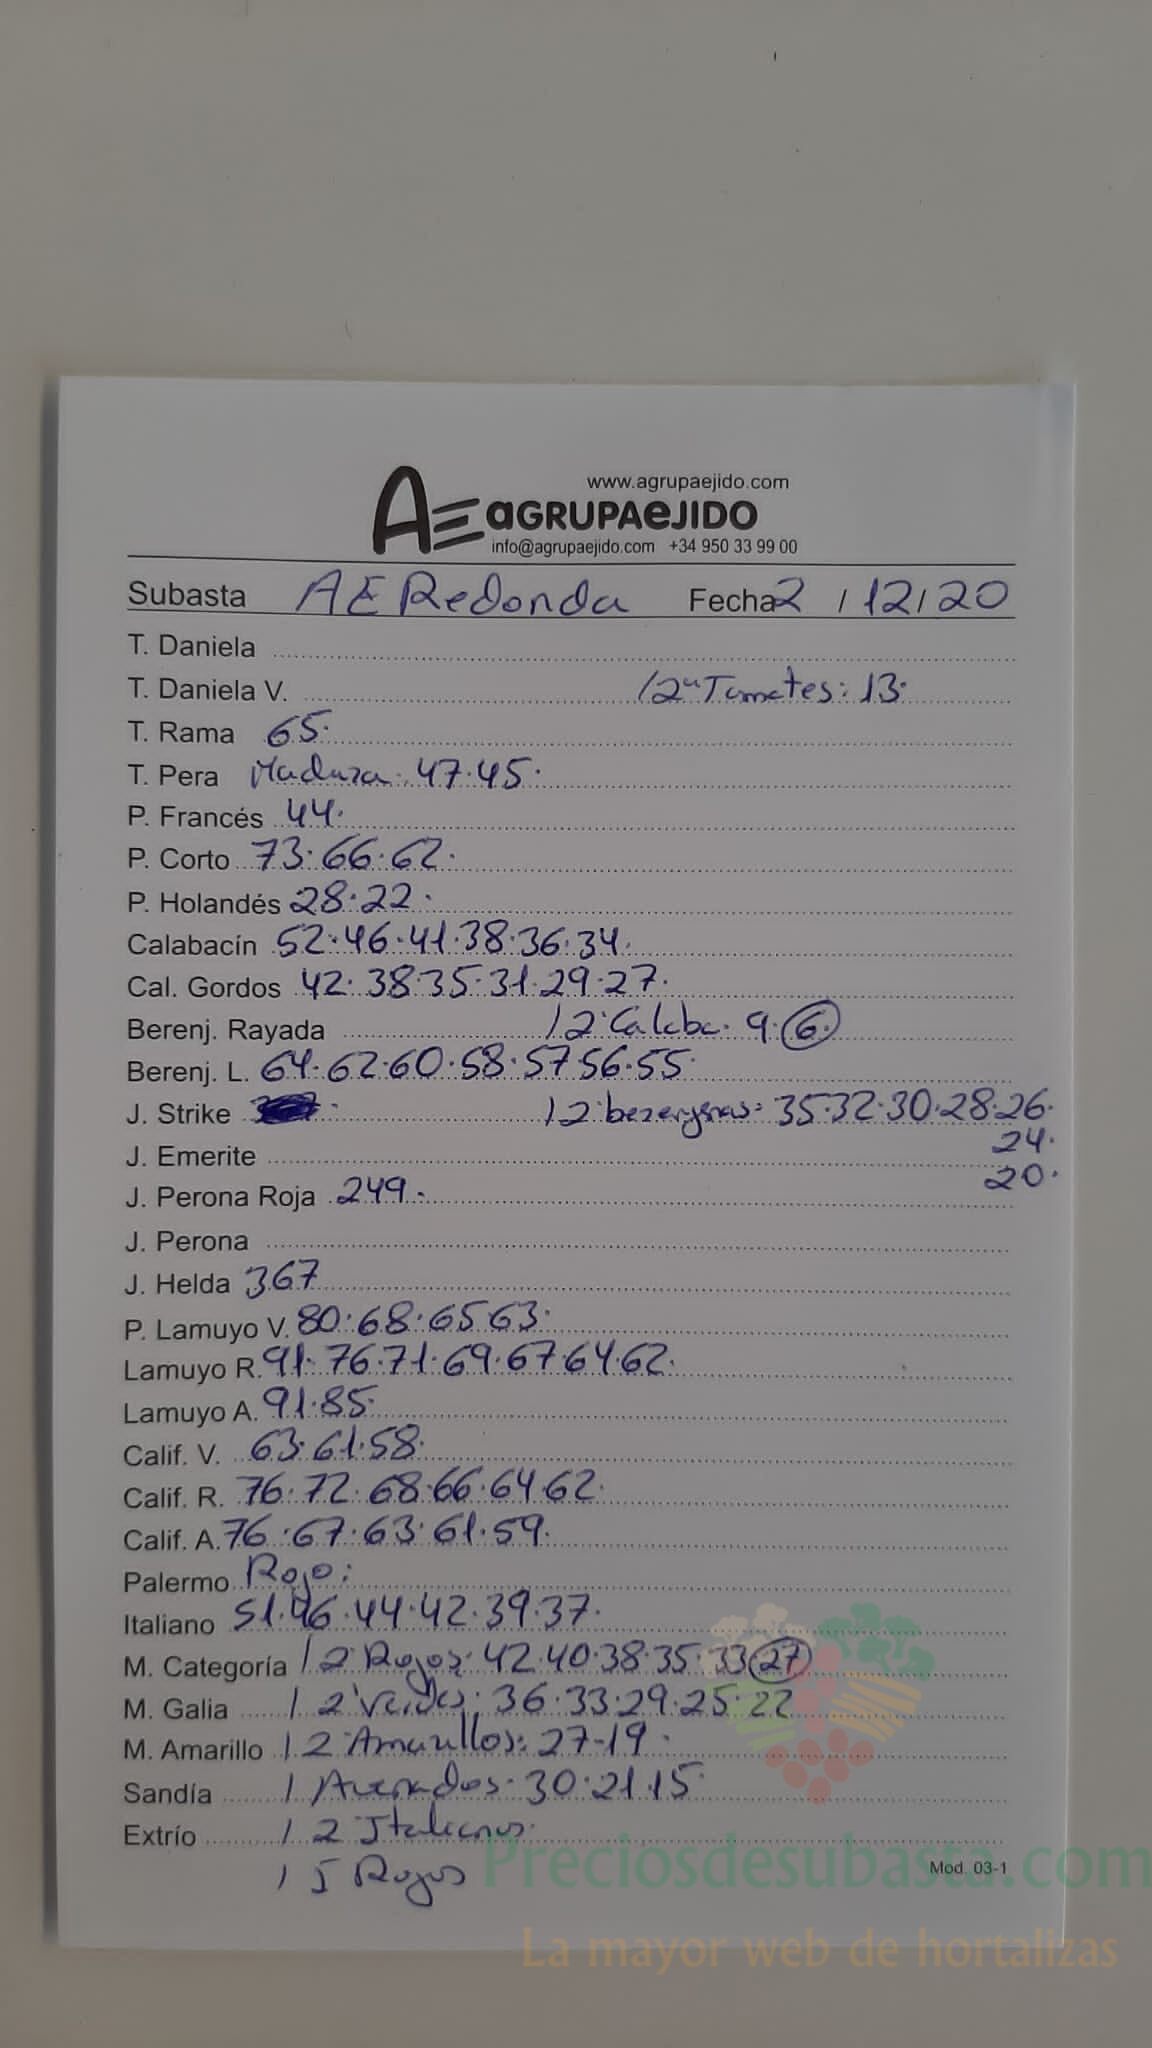 www.agrupaejido.com
AE AGRUPAEJIDO
info@agrupaejido.com +34 950 33 99 00
Subasta AE Redonda Fecha 2 / 12 / 20
T. Daniela
T. Daniela V. / 2ª Tomates: 13.
T. Rama 65.
T. Pera Madura: 47.45.
P. Francés 44.
P. Corto 73.66.62.
P. Holandés 28.22.
Calabacín 52.46.41.38.36.34.
Cal. Gordos 42.38.35.31.29.27.
Berenj. Rayada / 2ª Calaba. 9.6.
Berenj. L. 64.62.60.58.57.56.55.
J. Strike / 2ª berenjenas: 35.32.30.28.26.
24.
J. Emerite
20.
J. Perona Roja 249.
J. Perona
J. Helda 367
P. Lamuyo V. 80.68.65.63.
Lamuyo R. 91.76.71.69.67.64.62.
Lamuyo A. 91.85.
Calif. V. 63.61.58.
Calif. R. 76.72.68.66.64.62.
Calif. A. 76.67.63.61.59.
Palermo Rojo:
Italiano 51.46.44.42.39.37.
M. Categoría / 2ª Rojos: 42.40.38.35.33 27
M. Galia / 2ª Verdes: 36.33.29.25.22
M. Amarillo / 2ª Amarillos: 27-19.
Sandía / Asurados. 30.21.15.
Extrío / 2ª Italianos.
/ I Rojos
Mod. 03-1
Preciosdesubasta.com
La mayor web de hortalizas